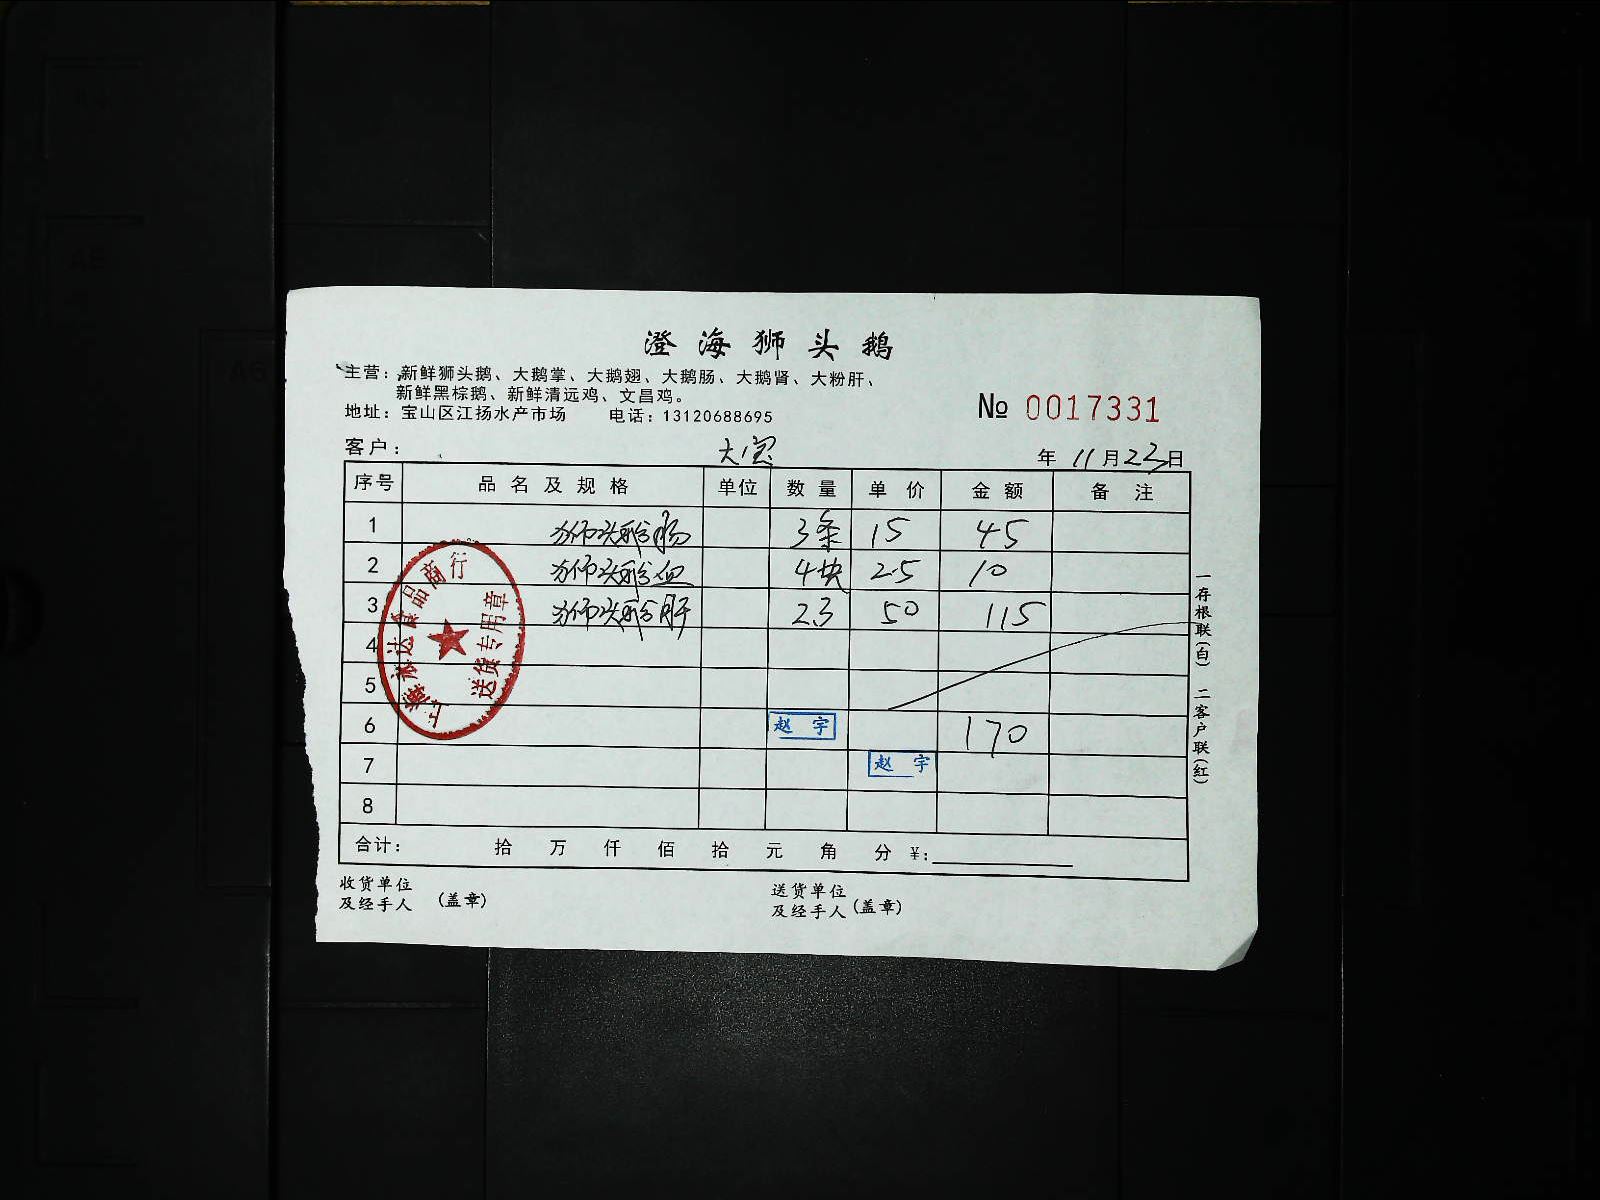 澄海狮头鹅
主营：新鲜狮头鹅、大鹅掌、大鹅翅、大鹅肠、大鹅肾、大粉肝、
新鲜黑棕鹅、新鲜清远鸡、文昌鸡。
地址：宝山区江扬水产市场 电话：13120688695
№ 0017331
客户： 大宝 年 11月23日
序号 品名及规格 单位 数量 单价 金额 备注
1 狮头鹅肠 3条 15 45
2 狮头鹅血 4块 2.5 10
3 狮头鹅肝 2.3 50 115
4
5
6 赵宇 170
7 赵宇
8
合计： 拾 万 仟 佰 拾 元 角 分 ￥:
收货单位
及经手人 (盖章)
送货单位
及经手人 (盖章)
一存根联(白) 二客户联(红)
达食品商行
送货专用章